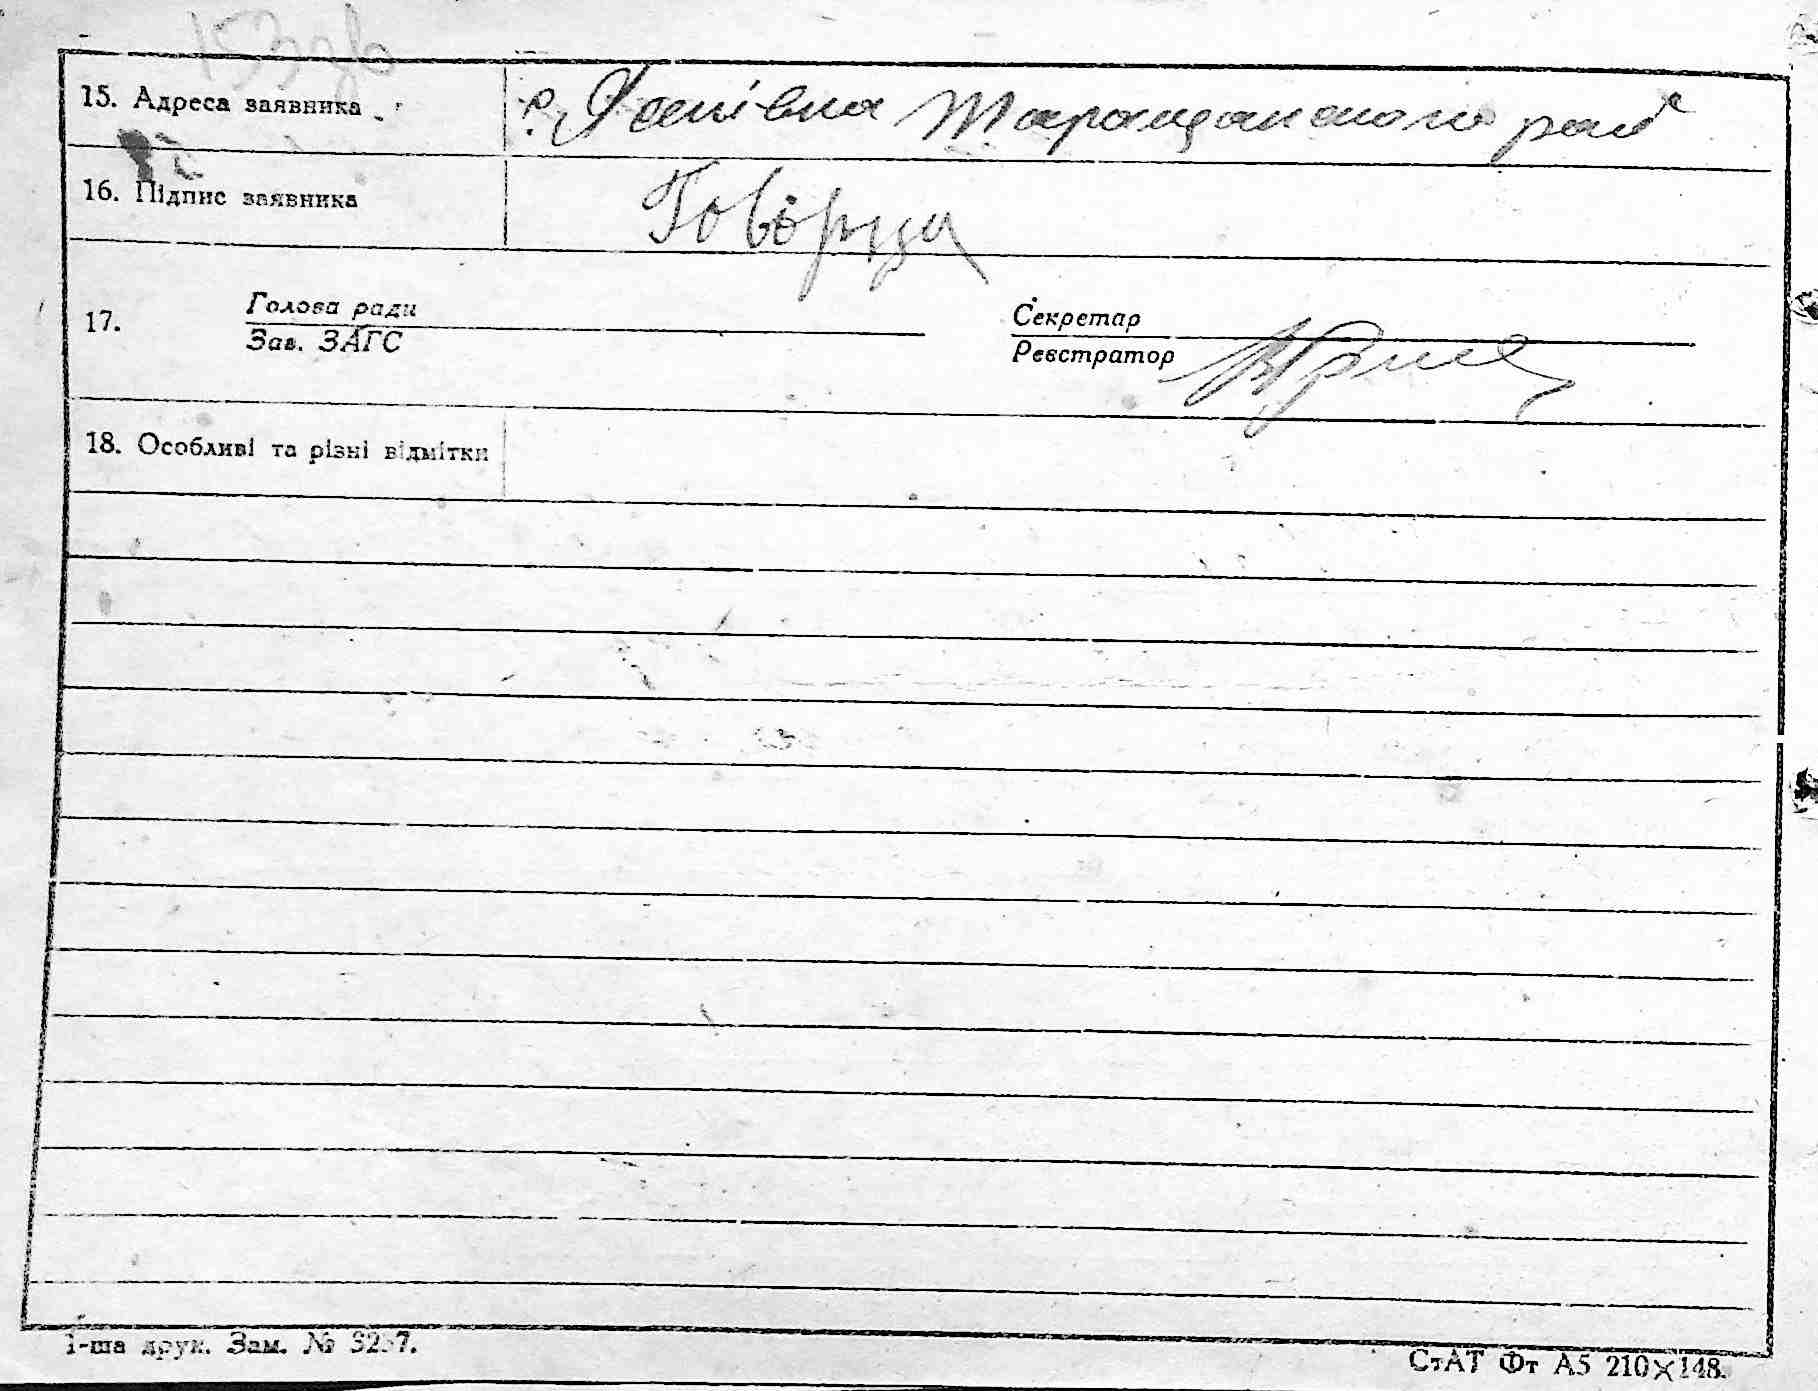 153 зв
15. Адреса заявника с. Лосівка Таращанського рай
16. Підпис заявника Говірца
17. Голова ради Секретар
Зав. ЗАГС Реєстратор
18. Особливі та різні відмітки
1-ша друк. Зам. № 3257.
СтАТ Фт А5 210×148.